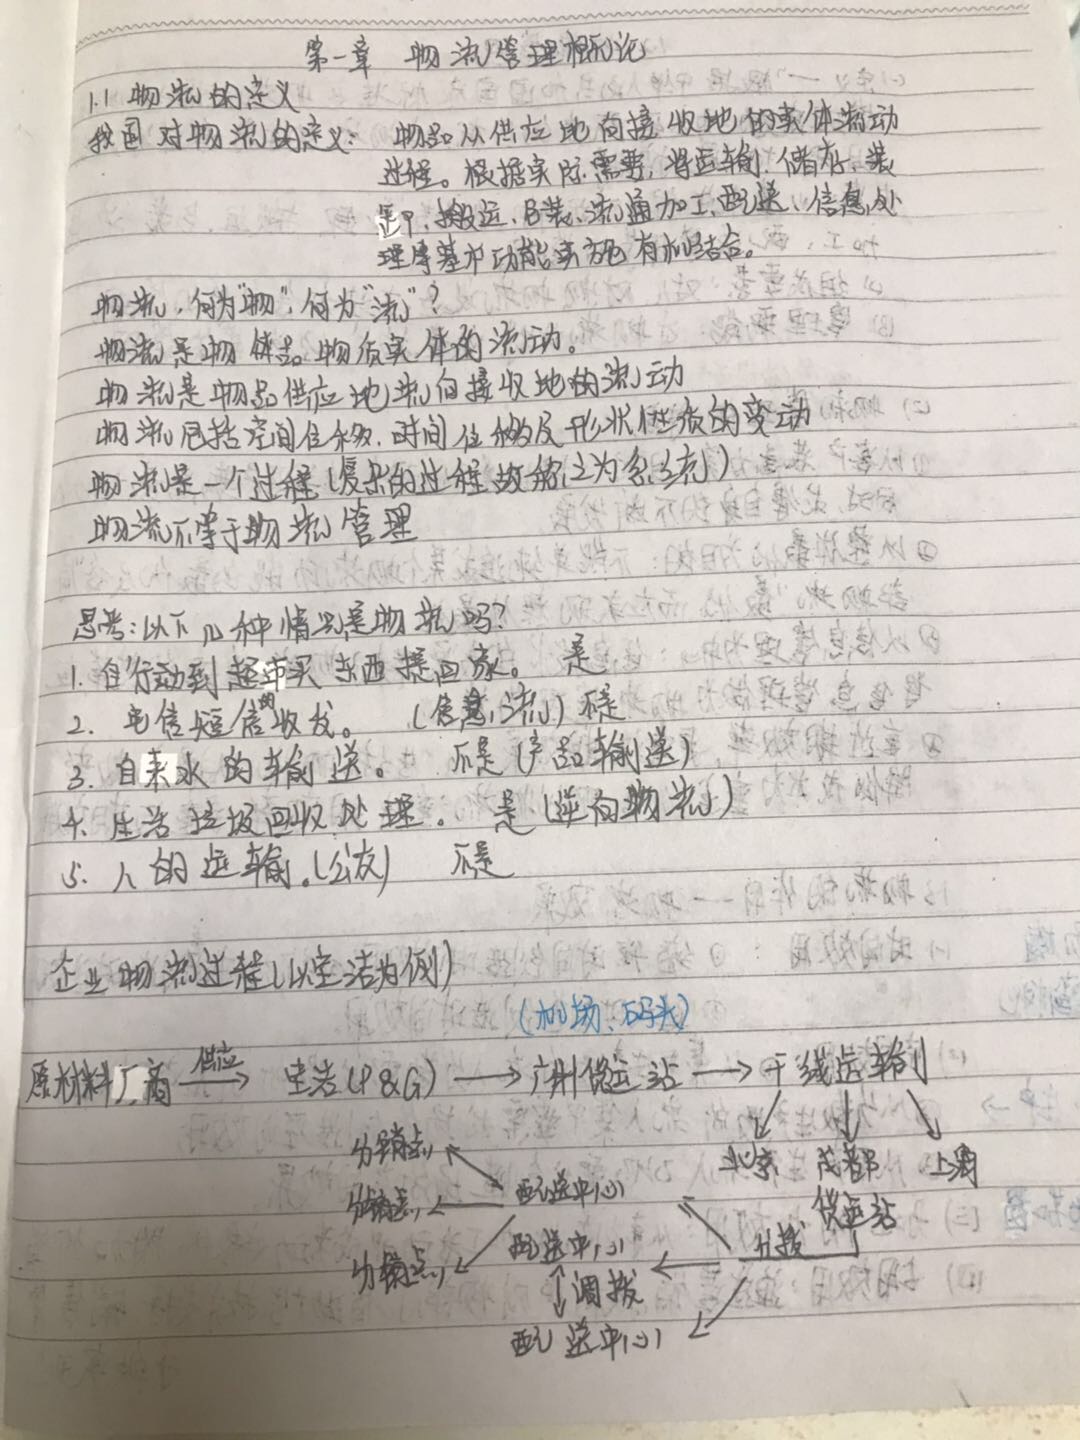 第一章 物流管理概论
1.1 物流的定义
我国对物流的定义: 物品从供应地向接收地的实体流动
过程。根据实际需要,将运输、储存、装
卸、搬运、包装、流通加工、配送、信息处
理等基本功能实施有机结合。
物流,何为"物",何为"流"?
物流是物体。物质实体的流动。
物流是物品供应地流向接收地的流动
物流包括空间位移、时间位移及形状性质的变动
物流是一个过程(复杂的过程故称之为系统)
物流不等于物流管理
思考:以下几种情况是物流吗?
1. 自行动到超市买东西提回家。 是
2. 电信短信的收发。 (信息流)不是
3. 自来水的输送。 不是(产品输送)
4. 生活垃圾回收处理。 是(逆向物流)
5. 人的运输。(公交) 不是
企业物流过程(以宝洁为例)
(机场、码头)
原材料厂商 供应 → 宝洁(P&G) → 广州储运站 → 干线运输
北京 成都 上海
储运站
分销点 配送中心
分销点 配送中心 分拨
分销点 调拨
配送中心